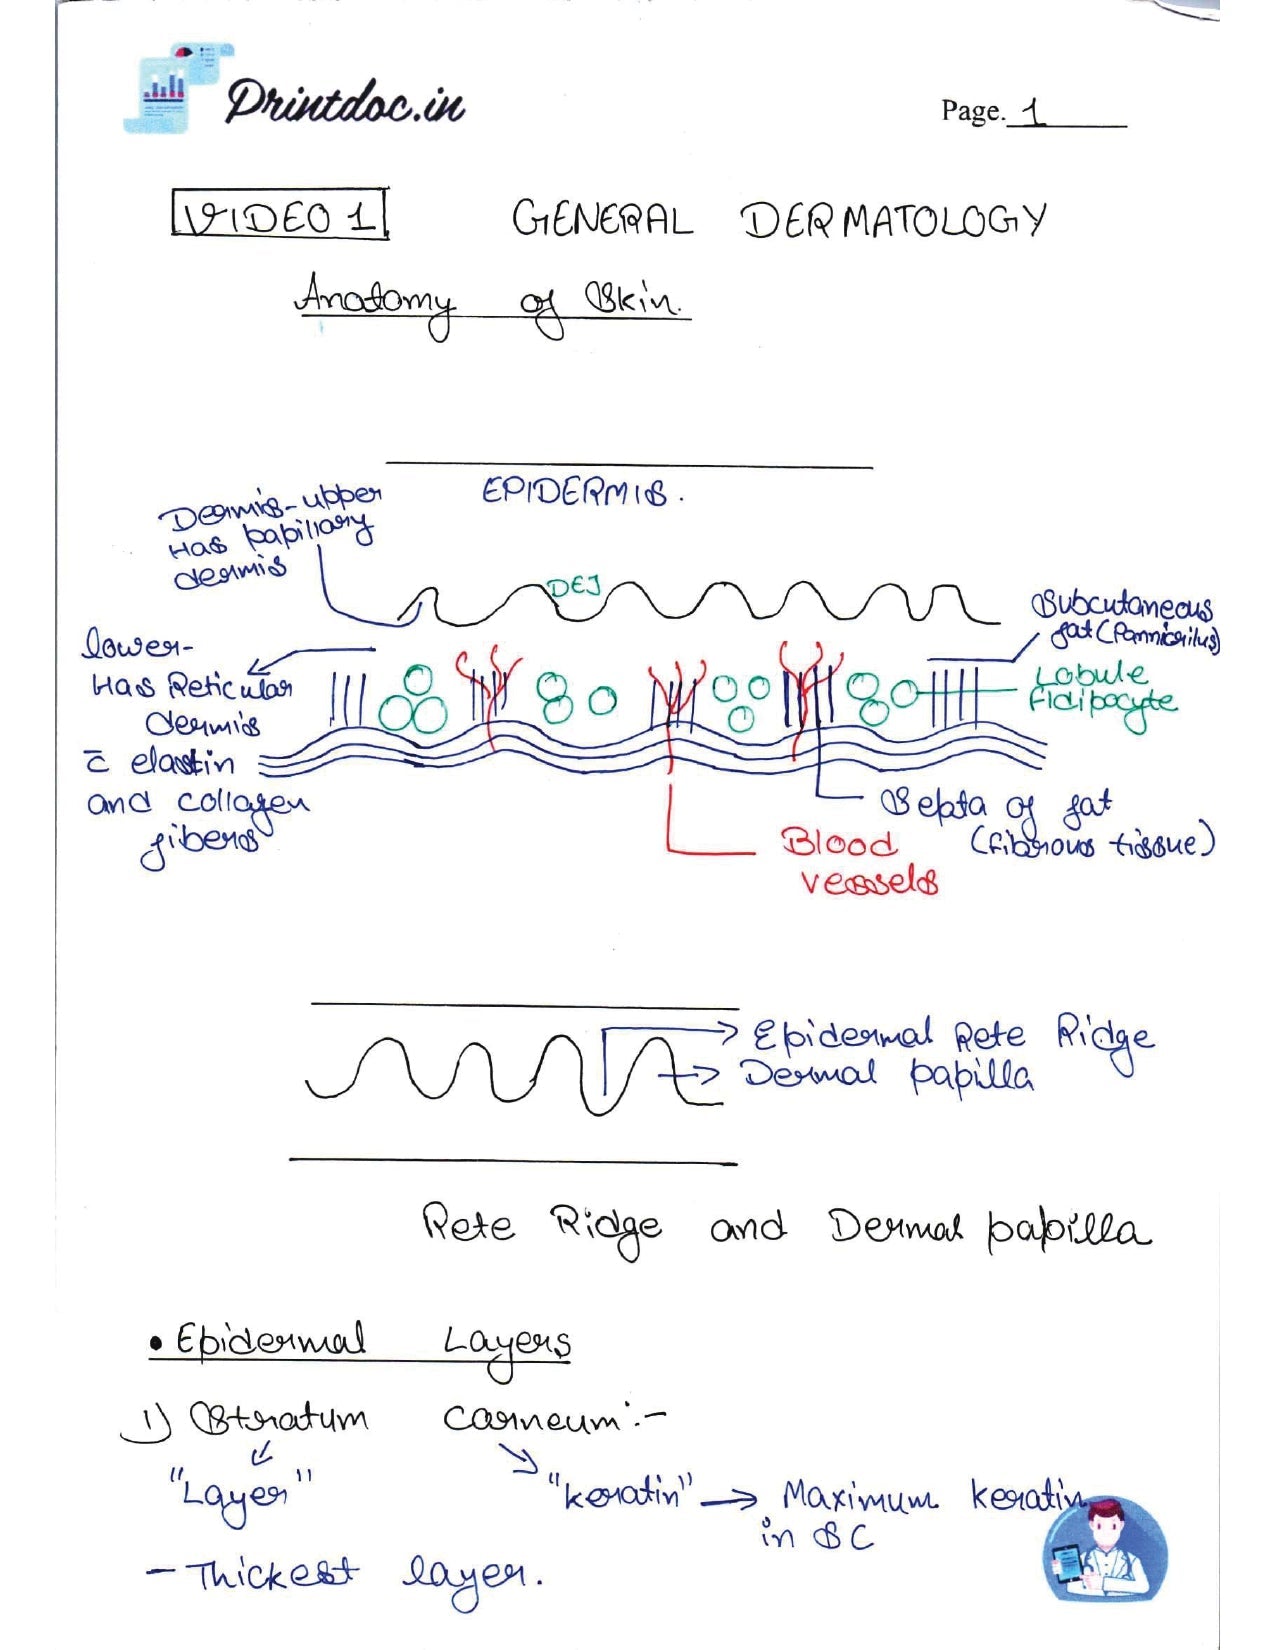 Printdoc.in
Page. 1
VIDEO 1 GENERAL DERMATOLOGY
Anatomy of Skin.
EPIDERMIS.
Dermis-upper
Has papillary
dermis
DEJ
Subcutaneous
fat (Pannicilus)
lower-
Has Reticular
dermis
c̄ elastin
and collagen
fibers
Lobule
Fidipocyte
Septa of fat
(fibrous tissue)
Blood
vessels
Epidermal Rete Ridge
Dermal papilla
Rete Ridge and Dermal papilla
• Epidermal Layers
1) Stratum Corneum :-
"Layer"
"keratin" → Maximum keratin
in SC
- Thickest layer.